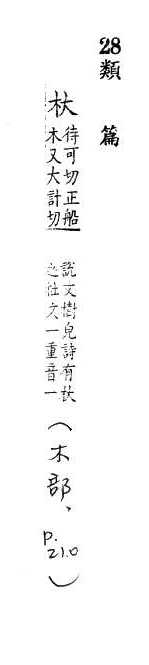 28類 篇
杕
待可切正船
木又大計切
說文樹皃詩有杕
之杜文一重音一
(木部、p.210)